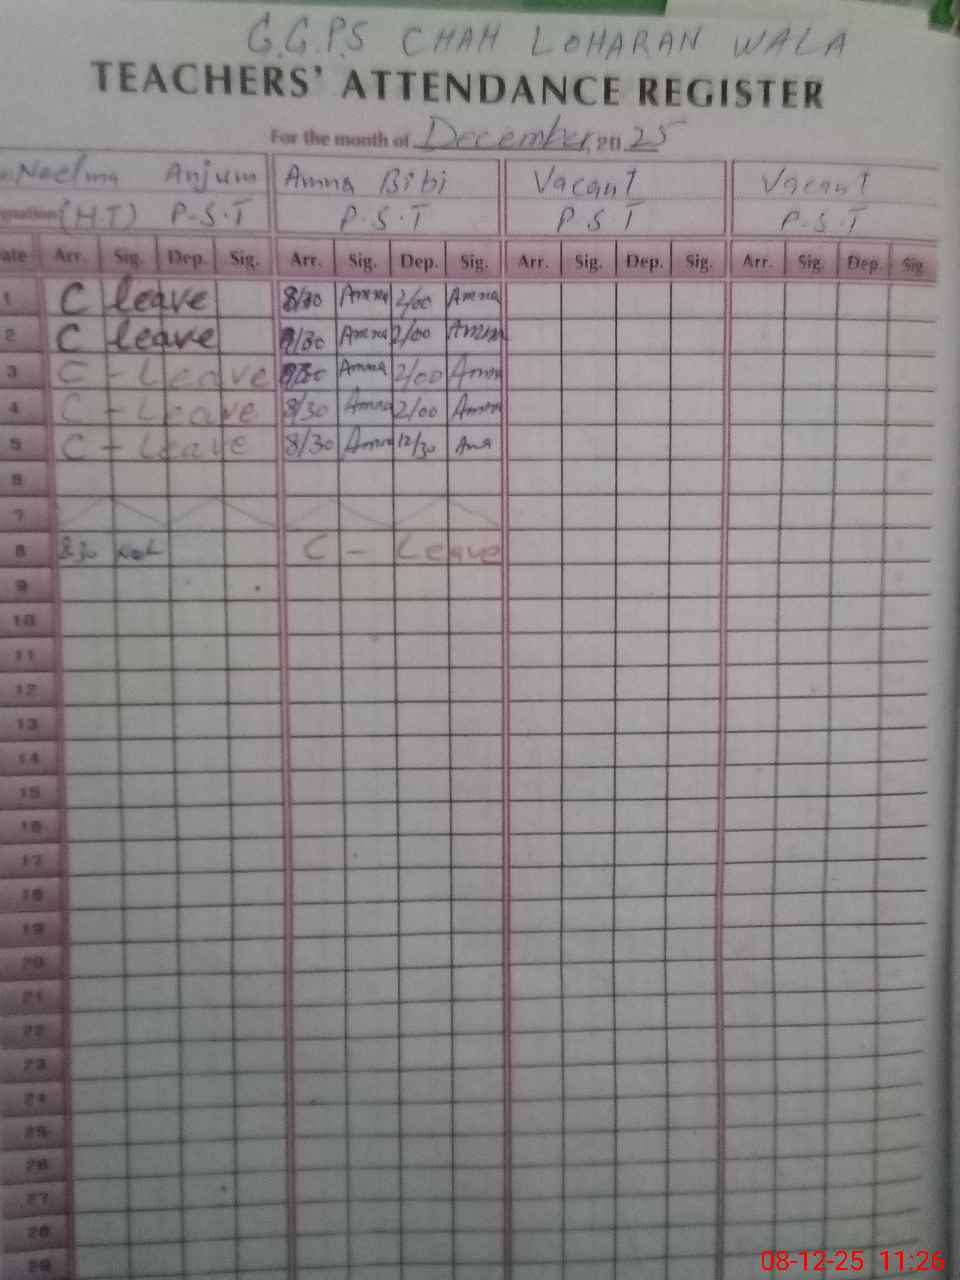 G.G.P.S CHAH LOHARAN WALA
TEACHERS' ATTENDANCE REGISTER
For the month of December, 20 25
Naelma Anjum Amna Bibi Vacant Vacant
(H.T) P.S.T P.S.T P.S.T P.S.T
Arr. Sig. Dep. Sig. Arr. Sig. Dep. Sig. Arr. Sig. Dep. Sig. Arr. Sig. Dep. Sig.
1 C leave 8/30 Amna 2/00 Amna
2 C leave 8/30 Amna 2/00 Amna
3 C - Leave 8/30 Amna 2/00 Amna
4 C - Leave 8/30 Amna 2/00 Amna
5 C - Leave 8/30 Amna 12/30
6
7
8 C - Leave
9
10
11
12
13
14
15
16
17
18
19
20
21
22
23
24
25
26
27
28
29
08-12-25 11:26